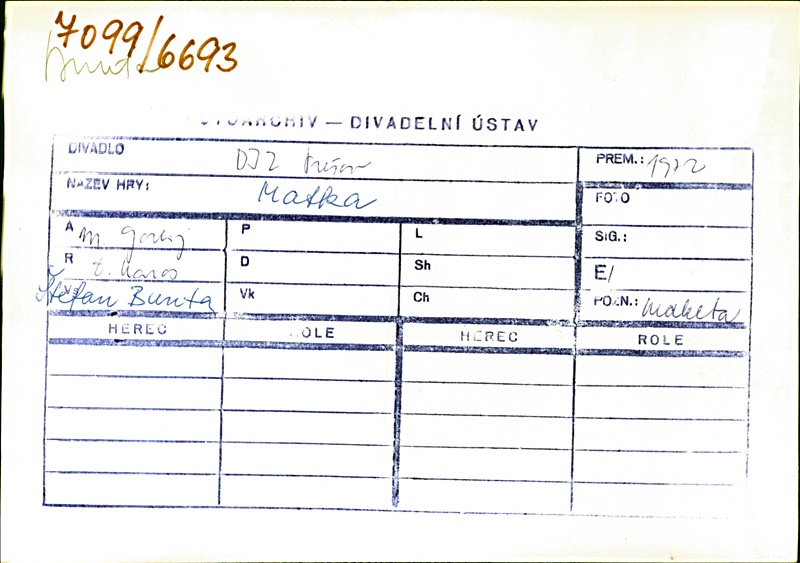 7099/6693
Bunta
FOTOARCHIV — DIVADELNÍ ÚSTAV
DIVADLO DJZ Prešov PREM.: 1972
NÁZEV HRY: Matka FOTO
A M. Gorkij P L SIG.:
R D Sh E/
Vs Štefan Bunta Vk Ch POZN.: Maketa
HEREC ROLE HEREC ROLE